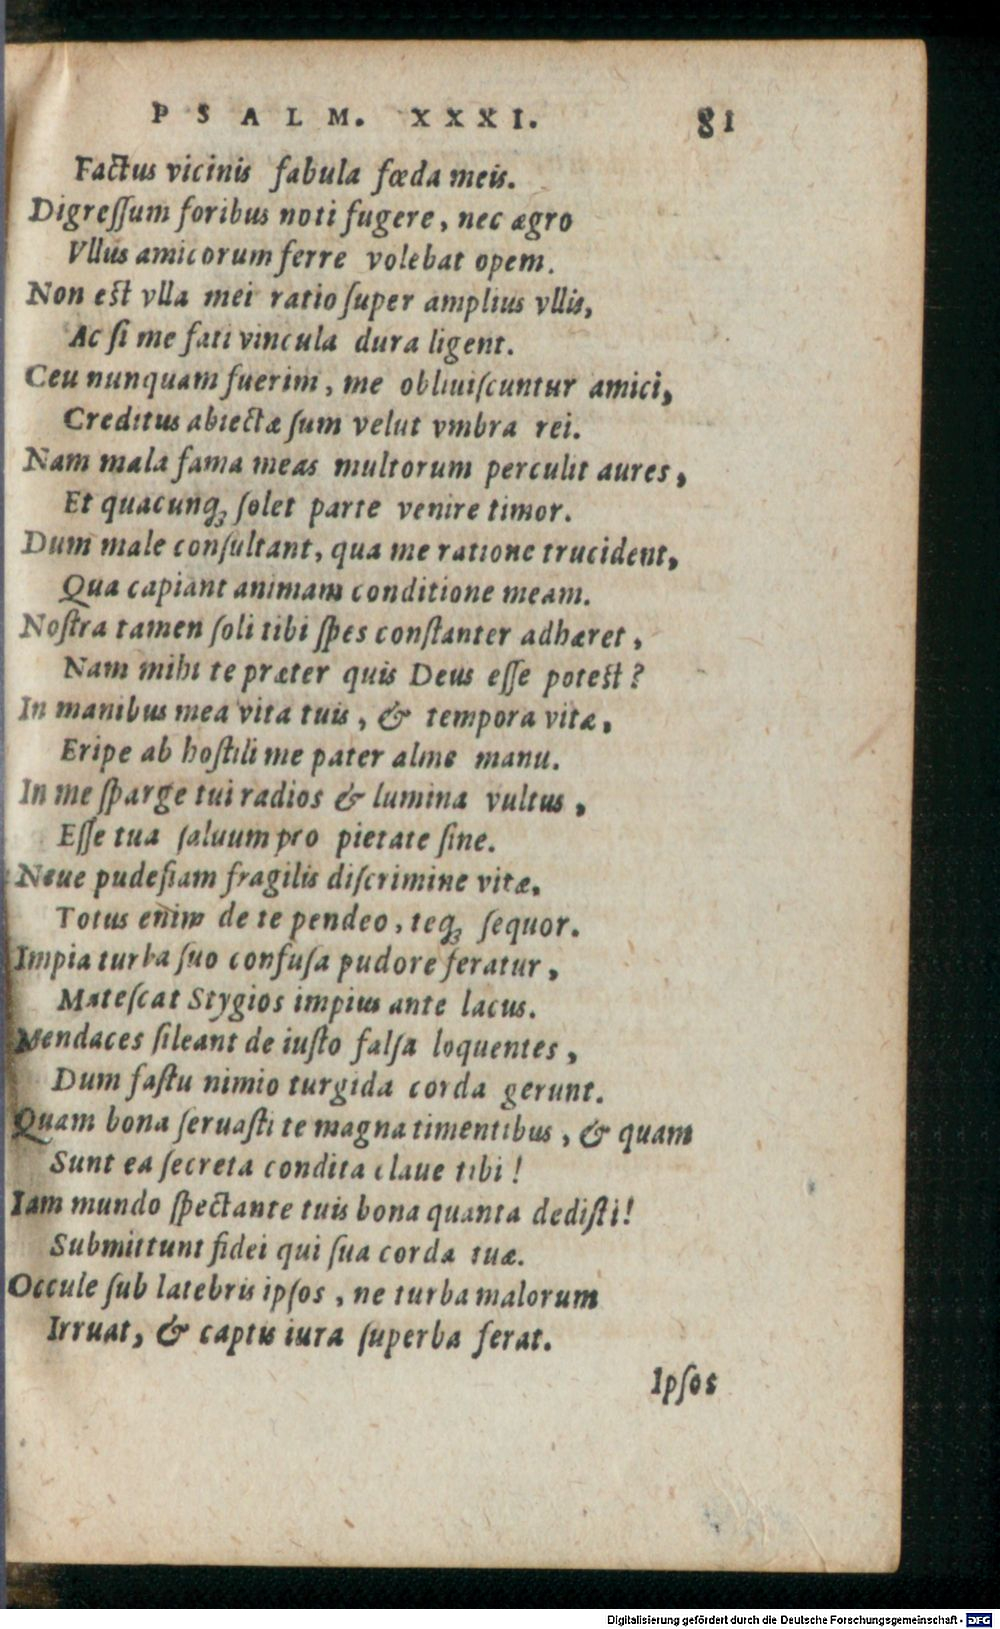 PSALM. XXXI. 81
Factus vicinis fabula fœda meis.
Digreſſum foribus noti fugere, nec ægro
Vllus amicorum ferre volebat opem.
Non est vlla mei ratio ſuper amplius vllis,
Ac ſi me fati vincula dura ligent.
Ceu nunquam fuerim, me obliuiſcuntur amici,
Creditus abiectæ ſum velut vmbra rei.
Nam mala fama meas multorum perculit aures,
Et quacunq; ſolet parte venire timor.
Dum male conſultant, qua me ratione trucident,
Qua capiant animam conditione meam.
Noſtra tamen ſoli tibi ſpes conſtanter adhæret,
Nam mihi te præter quis Deus eſſe potest?
In manibus mea vita tuis, & tempora vitæ,
Eripe ab hoſtili me pater alme manu.
In me ſparge tui radios & lumina vultus,
Eſſe tua ſaluum pro pietate ſine.
Neue pudeſiam fragilis diſcrimine vitæ,
Totus enim de te pendeo, teq; ſequor.
Impia turba ſuo confuſa pudore feratur,
Mateſcat Stygios impius ante lacus.
Mendaces ſileant de iuſto falſa loquentes,
Dum faſtu nimio turgida corda gerunt.
Quam bona ſeruaſti te magna timentibus, & quam
Sunt ea ſecreta condita claue tibi!
Iam mundo ſpectante tuis bona quanta dediſti!
Submittunt fidei qui ſua corda tuæ.
Occule ſub latebris ipſos, ne turba malorum
Irruat, & captis iura ſuperba ferat.
Ipſos
Digitalisierung gefördert durch die Deutsche Forschungsgemeinschaft - DFG